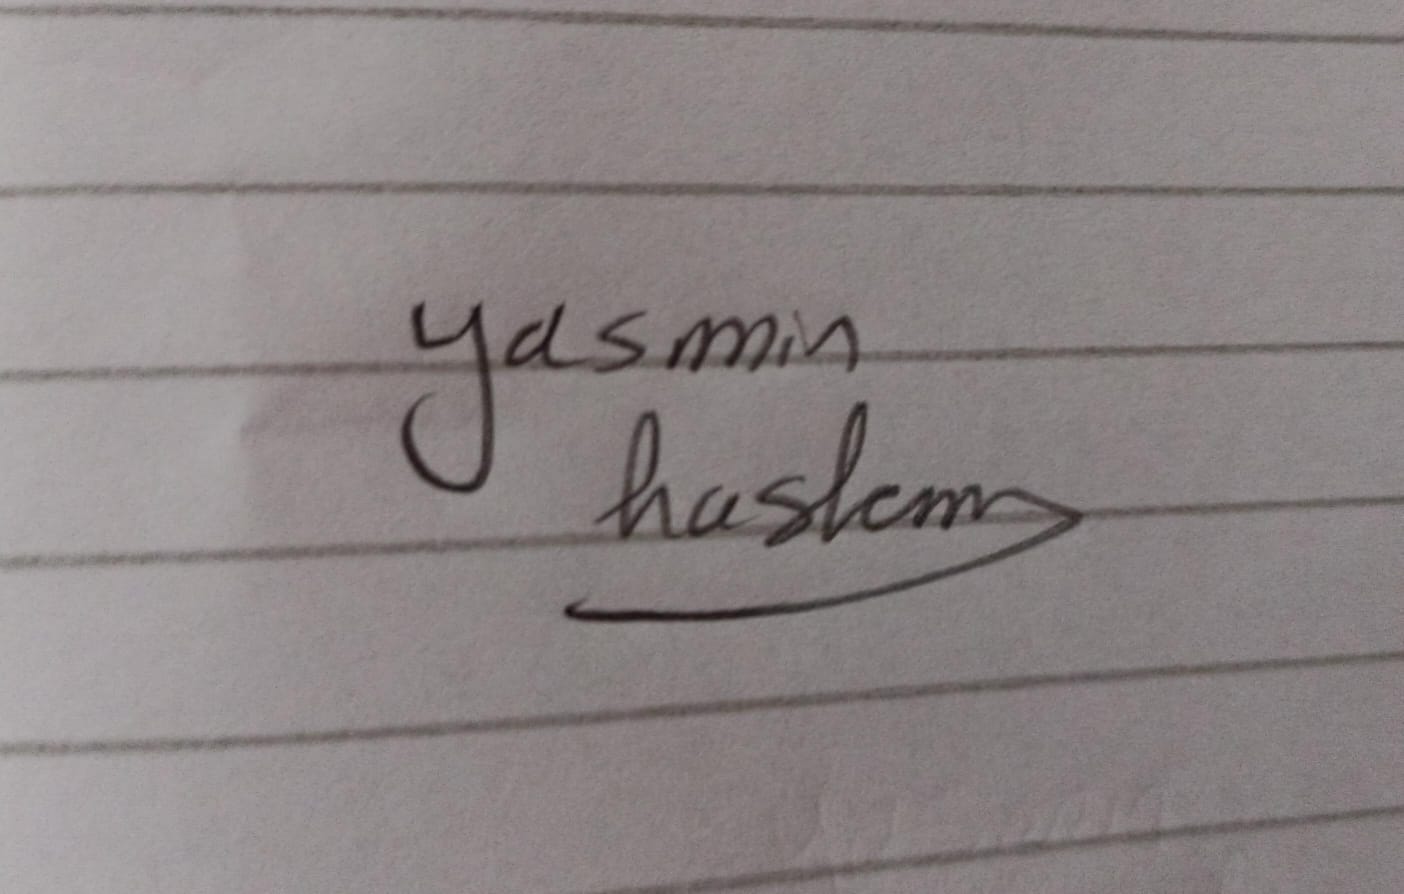 yasmin
haslem